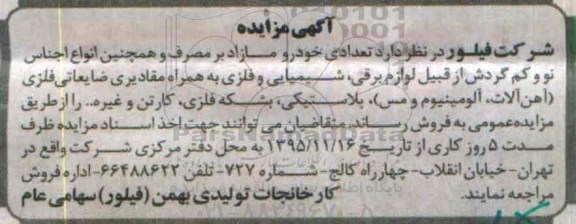 آگهی مزایده
شرکت فیلور در نظر دارد تعدادی خودرو مازاد بر مصرف و همچنین انواع اجناس
نو و کم گردش از قبیل لوازم برقی، شیمیایی و فلزی به همراه مقادیری ضایعاتی فلزی
(آهن آلات، آلومینیوم و مس)، پلاستیکی، بشکه فلزی، کارتن و غیره.. را از طریق
مزایده عمومی به فروش رساند. متقاضیان می توانند جهت اخذ اسناد مزایده ظرف
مدت ۵ روز کاری از تاریخ ۱۳۹۵/۱۱/۱۶ به محل دفتر مرکزی شرکت واقع در
تهران-خیابان انقلاب-چهارراه کالج-شماره ۷۲۷-تلفن ۶۶۴۸۸۶۲۲-اداره فروش
مراجعه نمایند.
کارخانجات تولیدی بهمن (فیلور) سهامی عام